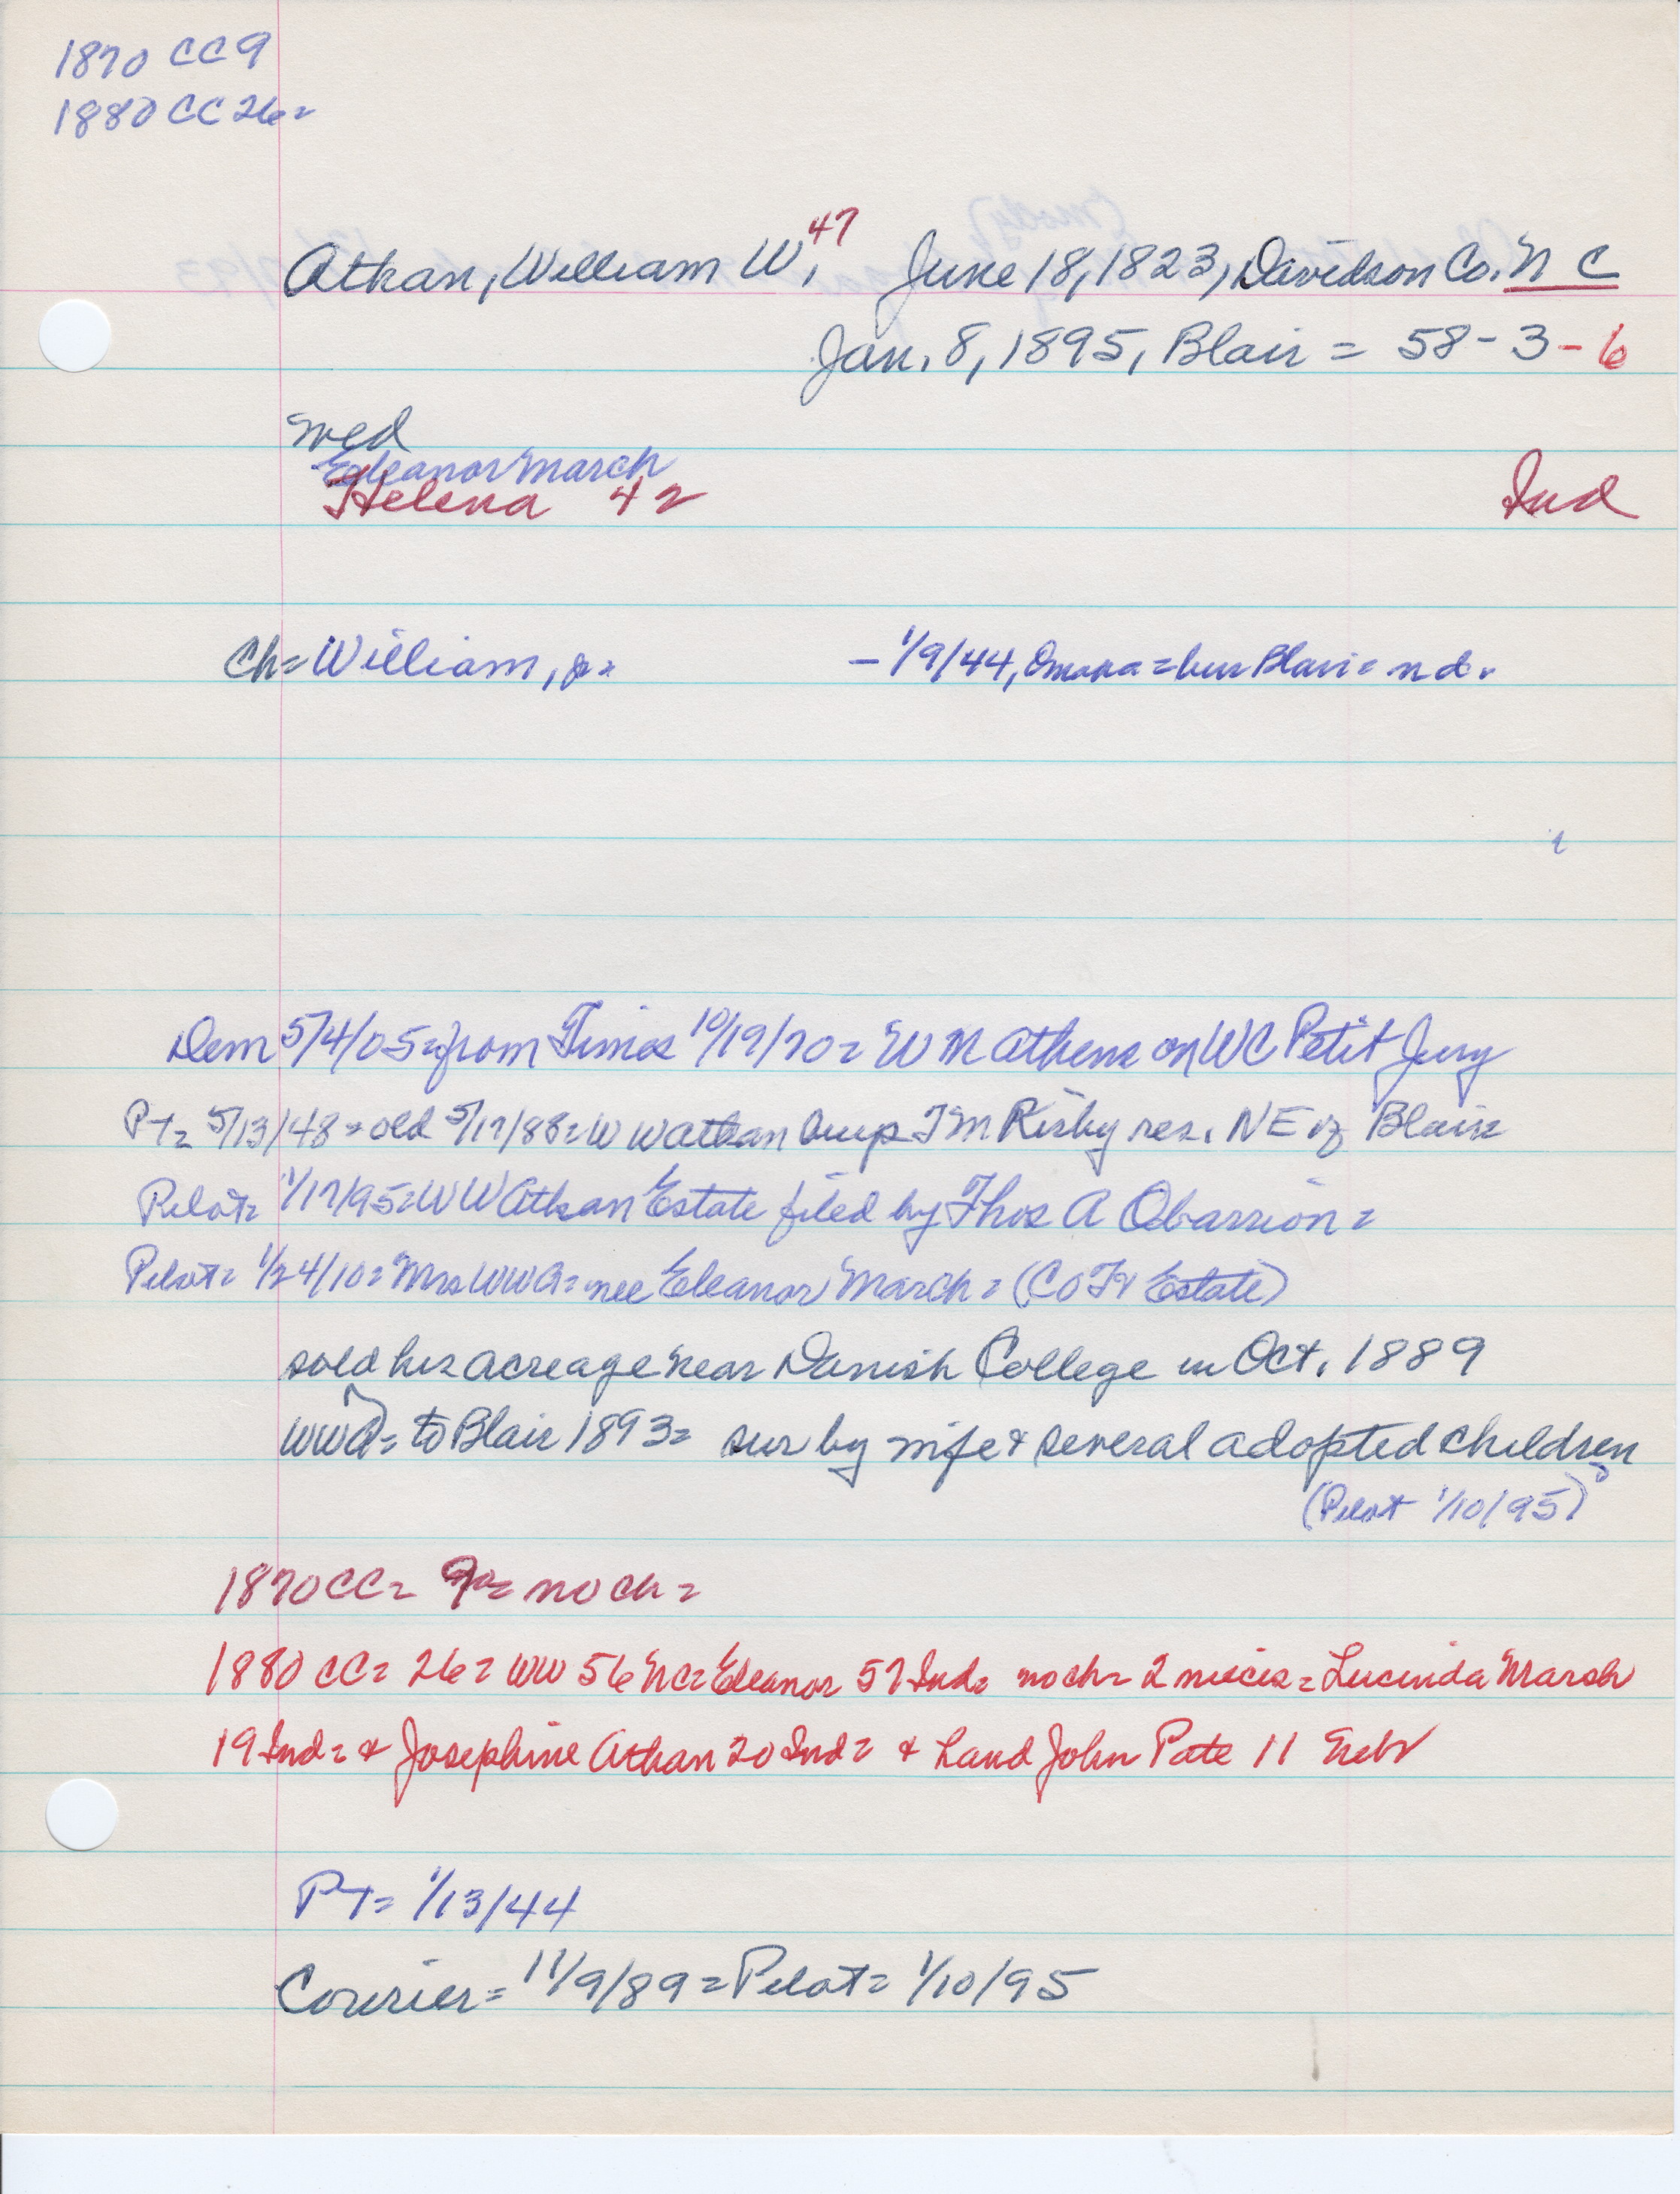 1870 CC 9
1880 CC 26=
Athan, William W, 47 June 18, 1823, Davidson Co. N C
Jan. 8, 1895, Blair = 58-3-6
wed
Eleanor March
Helena 42 Ind
Ch= William, Jr= - 1/9/44, Omaha = bur Blair = nd.
Dem 5/4/05=from Times 10/19/70= W M Athens on WC Petit Jury
PT= 5/13/48=old 5/17/88=W W Athan T M Risby res. NE of Blair
Pilot= 1/17/95=W W Athan Estate filed by Thos A Obarrion=
Pilot= 1/24/10= Mrs WWA= nee Eleanor March = (COTV Estate)
sold his acreage near Danish College in Oct. 1889
WWA= to Blair 1893= sur by wife & several adopted children
(Pilot 1/10/95)
1870 CC= 9= no ch=
1880 CC= 26= WW 56 NC= Eleanor 57 Ind= no ch= 2 nieces= Lucinda Marsh
19 Ind= & Josephine Athan 20 Ind= & hand John Pate 11 Nebr
PT= 1/13/44
Courier= 11/9/89 = Pilot= 1/10/95